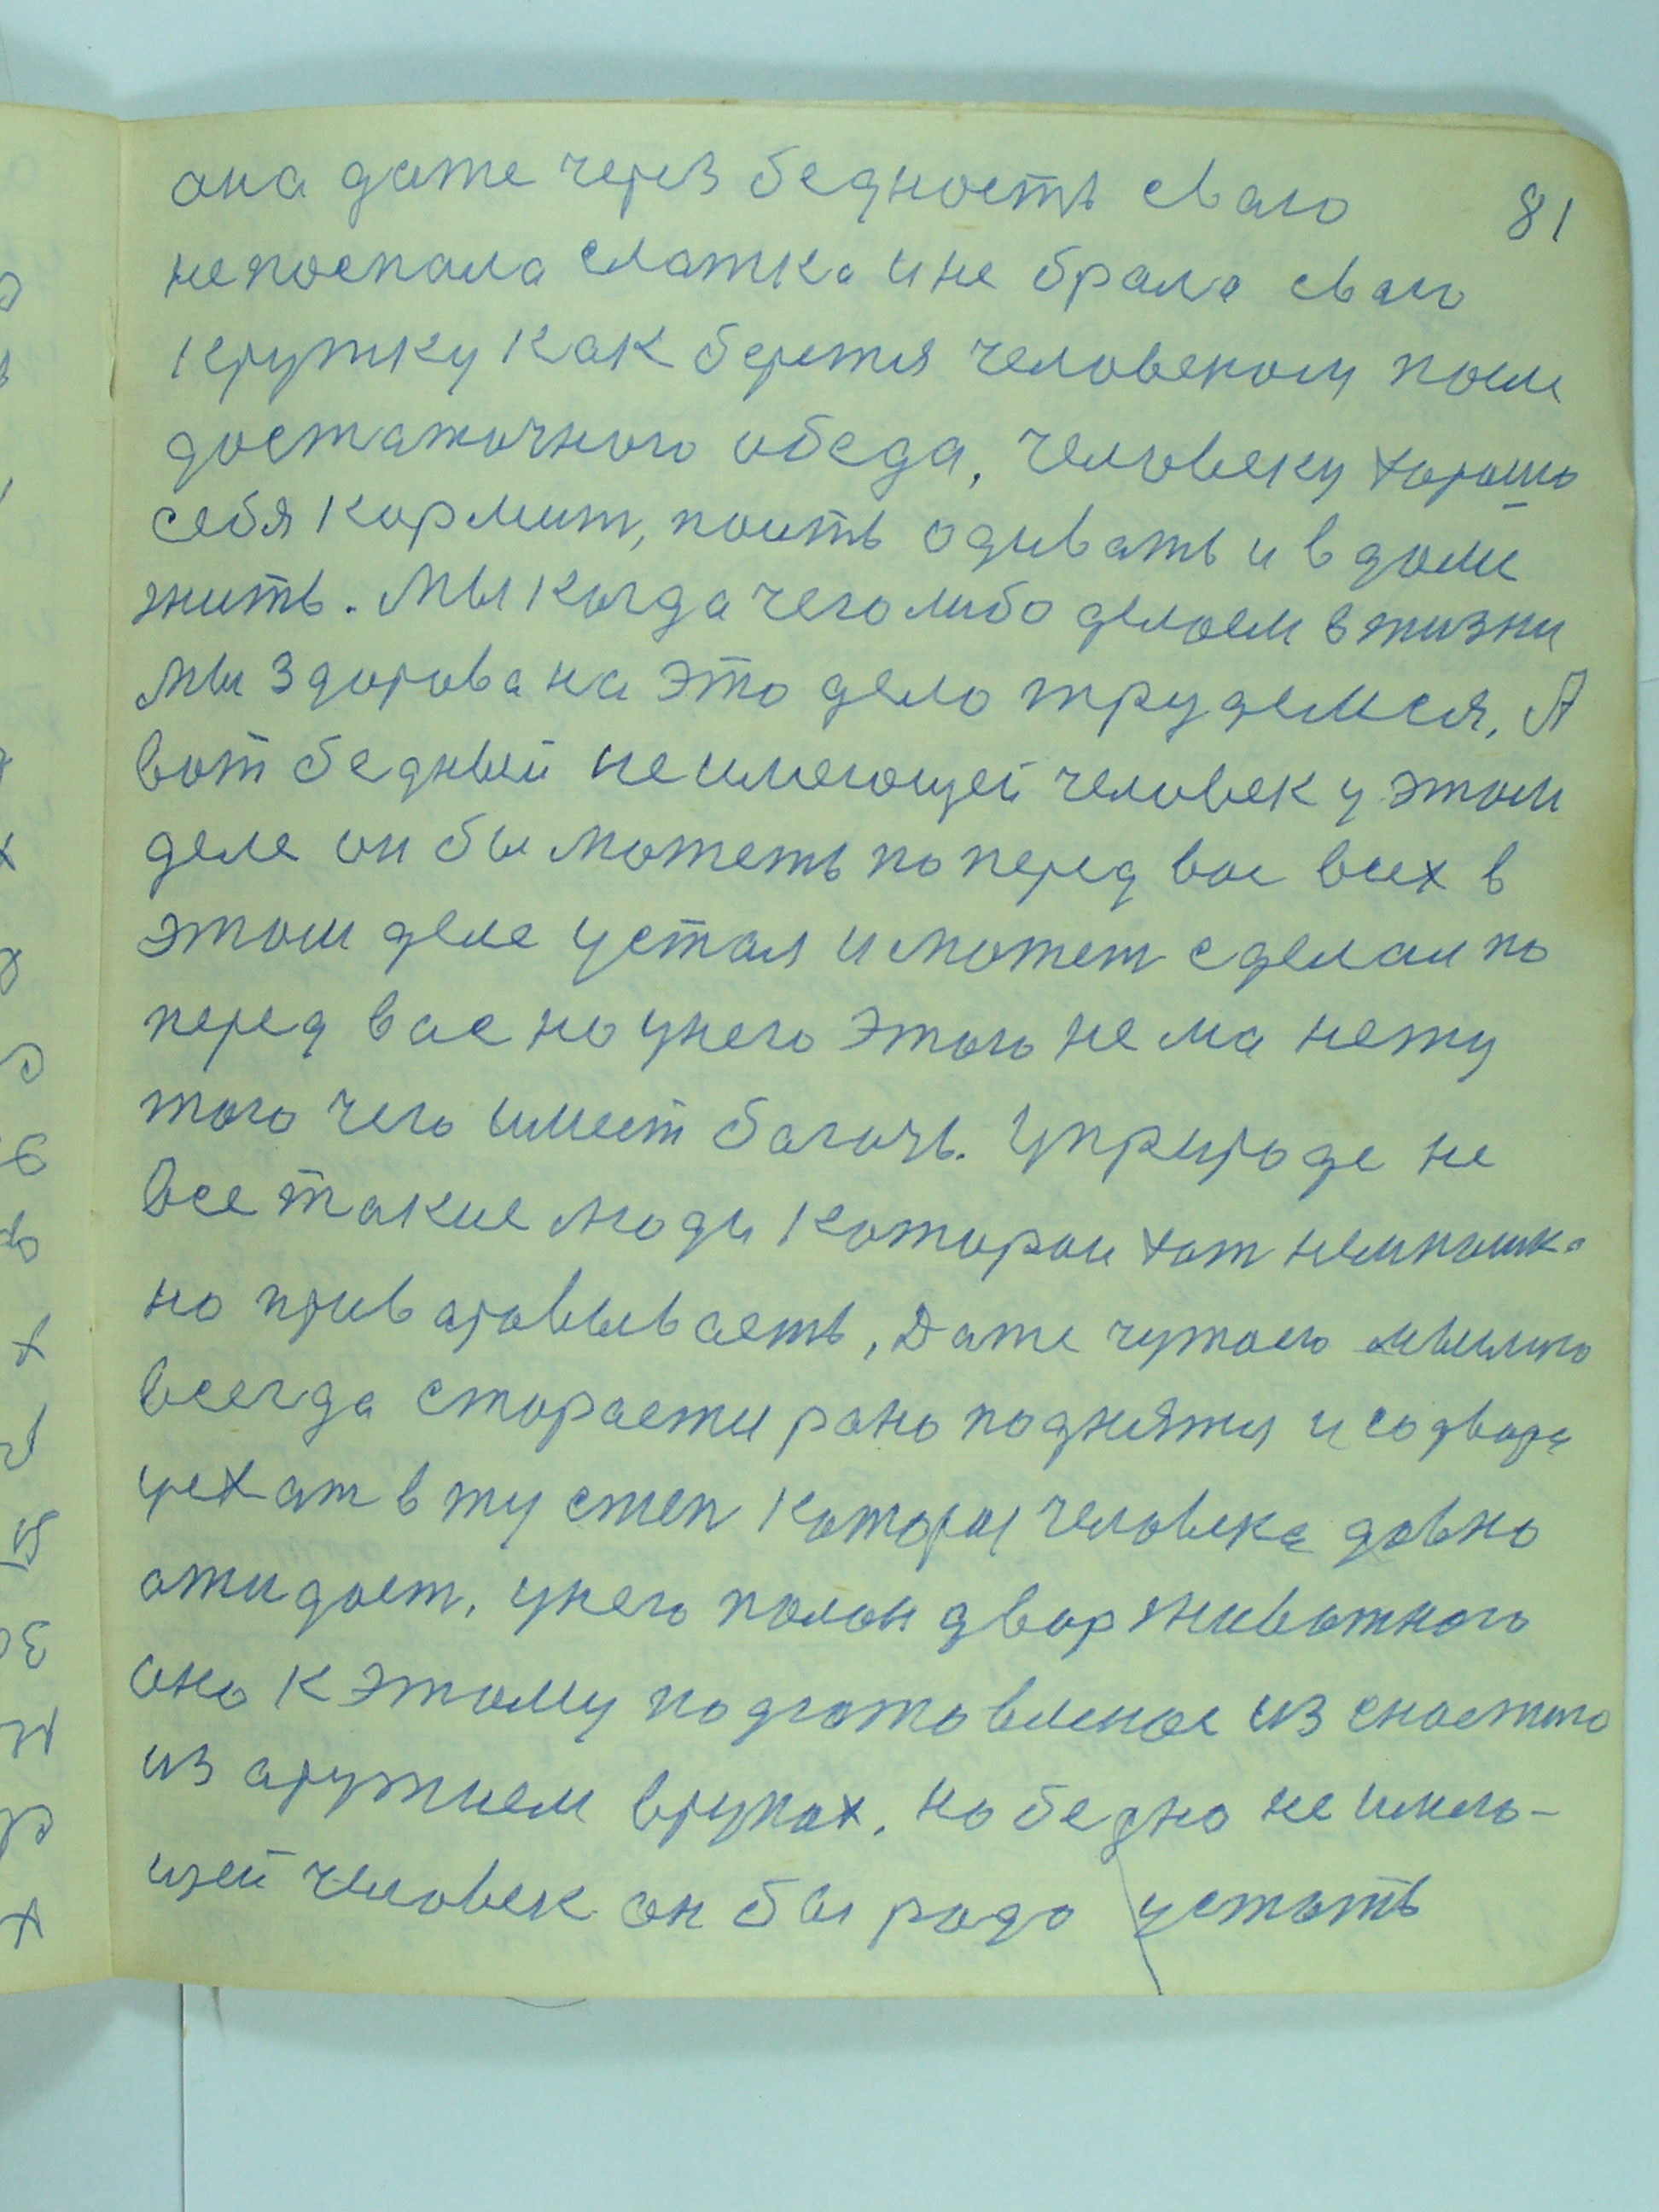 она даже через бедность сваго 81
непоспала слатка и не брала сваю
кружку как бержтя человеком посли
достаточного обеда, человеку хорошо
себя кормит, поить одивать и в доми
жить. Мы когда чего либо делаем в жизни
мы здорова на это дело трудемся, А
вот бедный неимеющей человек у этом
деле он бы можеть поперед вас всех в
этом деле устал и может сделаи по
перед вас но у него этого нема нету
того чего имеет багачь. У природе не
все такие люди которои хот немношка
но приваровываеть, Даже чужого мыилио
всегда сторается рано поднятя и со двора
уехат в ту степ котороя человека давно
ажидает, у него полон двор животного
оно к этому подготовленое из снастию
из аружием в руках. но бедно не имею-
щей человек он бы радо устать